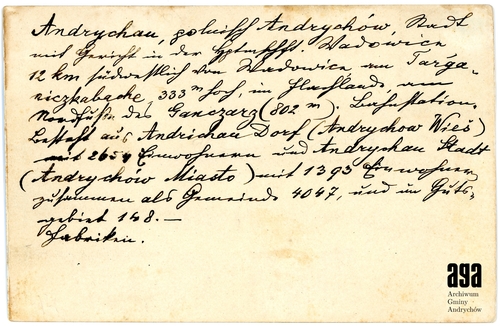 Andrychau, polnisch Andrychów, Stadt
mit Gericht in der Hptmschft. Wadowice
12 km südwestlich von Wadowice am Targa-
niczkabache, 333 m hoch, im Flachlande, am
Nordfuße des Ganczarz (802 m). Bahnstation.
Besteht aus Andrichau Dorf (Andrychow Wieś)
mit 2654 Einwohnern und Andrychau Stadt
(Andrychów Miasto) mit 1393 Einwohnern
zusammen als Gemeinde 4047, und im Guts-
gebiet 148. —
Fabriken.
aga
Archiwum
Gminy
Andrychów